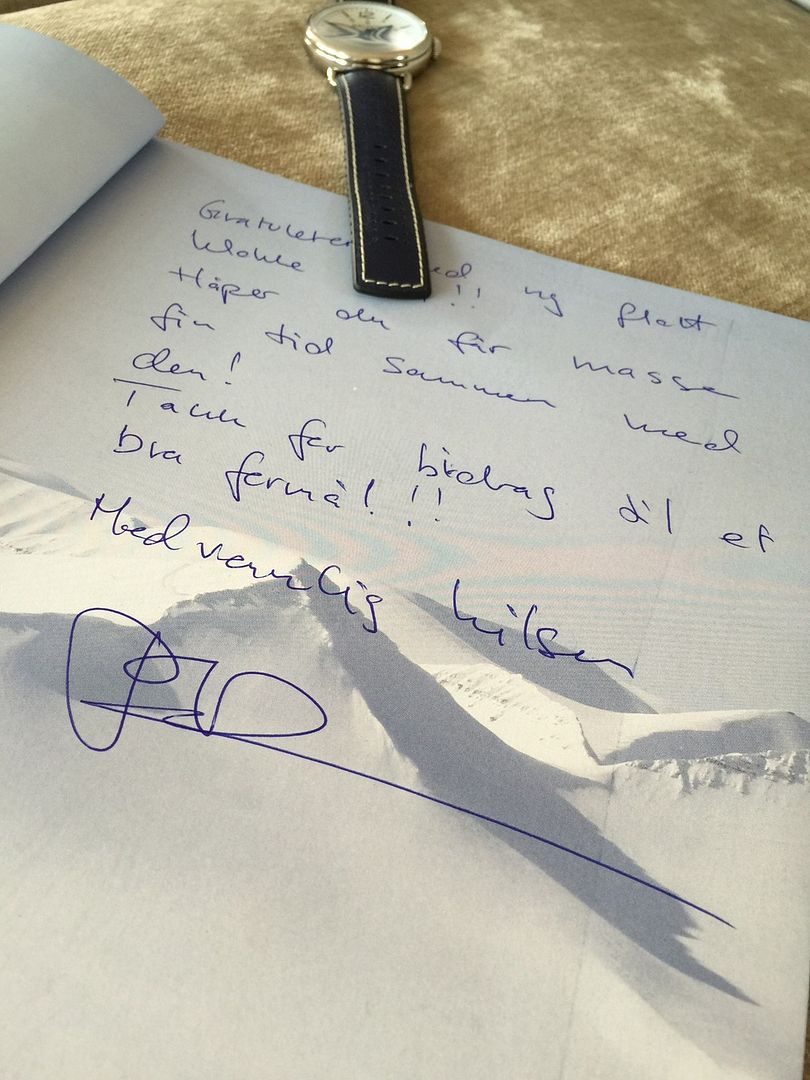 Gratulerer med ny flott
klokke !!
Håper du får masse
fin tid sammen med
den!
Takk for bidrag til et
bra formål!!!
Med vennlig hilsen